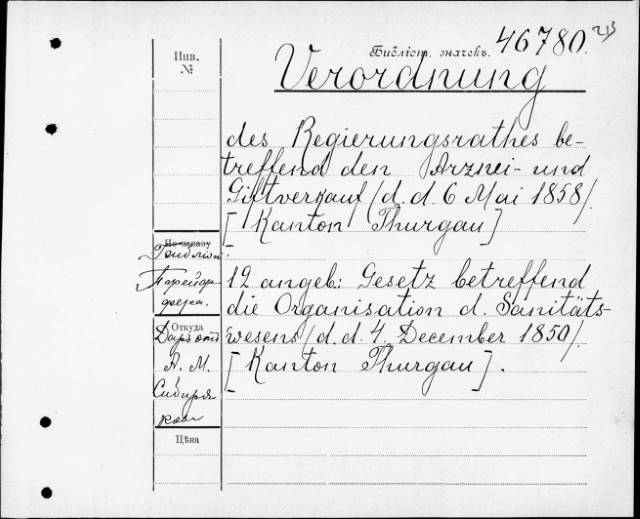 Инв.
№
Библіот. значекъ. 46780.
Verordnung
des Regierungsrathes be-
treffend den Arznei- und
Giftverkauf /d. d. 6 Mai 1858/.
[Kanton Thurgau]
12 angeb: Gesetz betreffend
die Organisation d. Sanitäts-
wesens /d. d. 4. December 1850/.
[Kanton Thurgau].
По заказу
Библіот.
Откуда
Даръ отъ
А. М.
Сибиря
кова
Цѣна